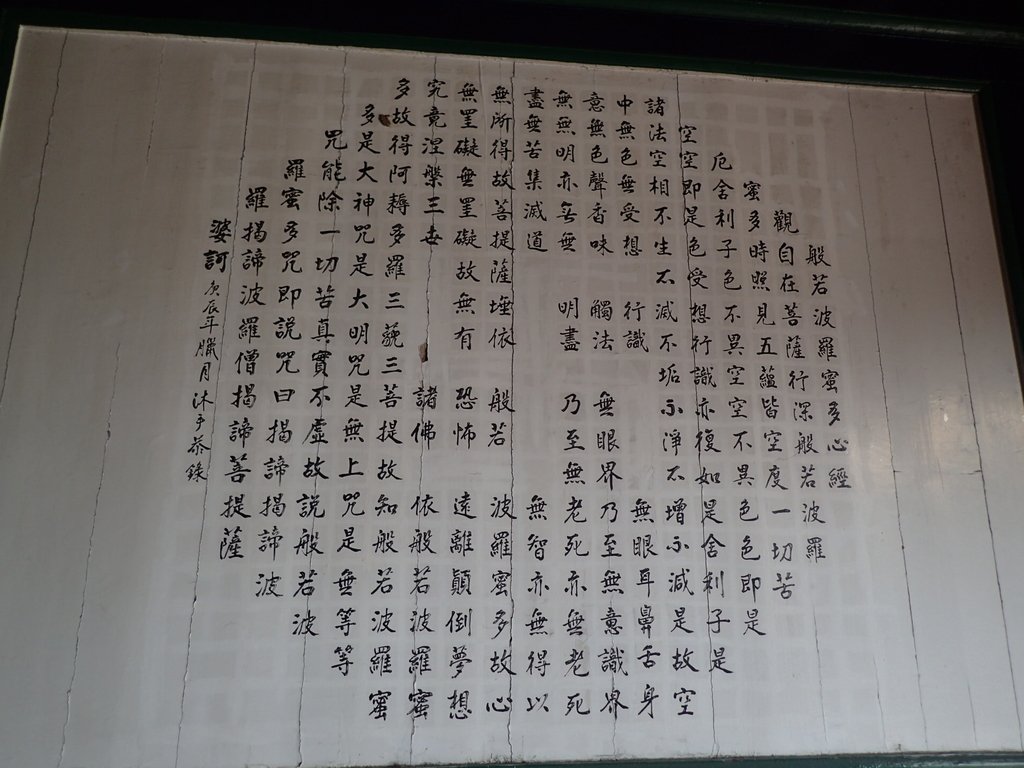 般若波羅蜜多心經
觀自在菩薩行深般若波羅
蜜多時照見五蘊皆空度一切苦
厄舍利子色不異空空不異色色即是
空空即是色受想行識亦復如是舍利子是
諸法空相不生不滅不垢不淨不增不減是故空
中無色無受想 行識 無眼耳鼻舌身
意無色聲香味 觸法 無眼界乃至無意識界
無無明亦無無 明盡 乃至無老死亦無老死
盡無苦集滅道 無智亦無得以
無所得故菩提薩埵依 般若 波羅蜜多故心
無罣礙無罣礙故無有 恐怖 遠離顛倒夢想
究竟涅槃三世 諸佛 依般若波羅蜜
多故得阿耨多羅三藐三菩提故知般若波羅蜜
多是大神咒是大明咒是無上咒是無等等
咒能除一切苦真實不虛故說般若波
羅蜜多咒即說咒曰揭諦揭諦波
羅揭諦波羅僧揭諦菩提薩
婆訶 庚辰年臘月沐手恭錄